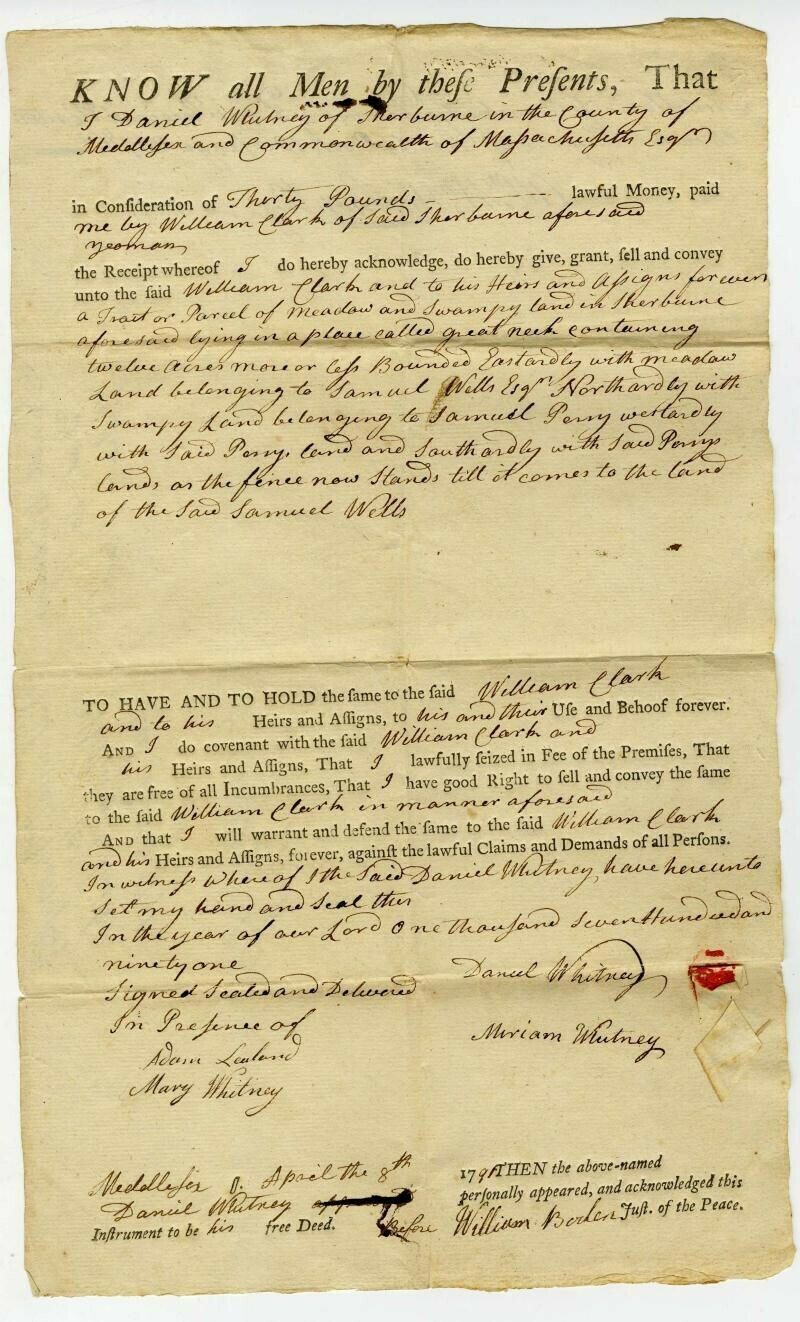 KNOW all Men by theſe Preſents, That
I Daniel Whitney of Sherburne in the County of
Meddlesex and Commonwealth of Massachusetts Esqr
in Conſideration of Thirty Pounds lawful Money, paid
me by William Clark of Said Sherburne aforesaid
yeoman
the Receipt whereof I do hereby acknowledge, do hereby give, grant, ſell and convey
unto the ſaid William Clark and to his Heirs and Assigns forever
a Tract or Parcel of Meadow and Swampy land in Sherburne
aforesaid lying in a place called great neck containing
twelve Acres more or less Bounded Eastardly with meadow
Land belonging to Samuel Wells Esqr Northardly with
Swampy Land belonging to Samuel Perry westardly
with Said Perrys land and Southardly with Said Perrys
lands as the fence now Stands till it comes to the land
of the Said Samuel Wells
TO HAVE AND TO HOLD the ſame to the ſaid William Clark
and to his Heirs and Aſſigns, to his and their Uſe and Behoof forever.
AND I do covenant with the ſaid William Clark and
his Heirs and Aſſigns, That I lawfully ſeized in Fee of the Premiſes, That
they are free of all Incumbrances, That I have good Right to ſell and convey the ſame
to the ſaid William Clark in manner aforesaid
AND that I will warrant and defend the ſame to the ſaid William Clark
and his Heirs and Aſſigns, forever, againſt the lawful Claims and Demands of all Perſons.
In witness whereof I the Said Daniel Whitney have hereunto
Set my hand and Seal this
In the year of our Lord One thousand Seven Hundred and
ninety one
Signed Sealed and Delivered
Daniel Whitney
In Presence of
Miriam Whitney
Adam Leland
Mary Whitney
Meddlesex April the 8th 1791 THEN the above-named
Daniel Whitney perſonally appeared, and acknowledged this
Inſtrument to be his free Deed. Before William Juſt. of the Peace.